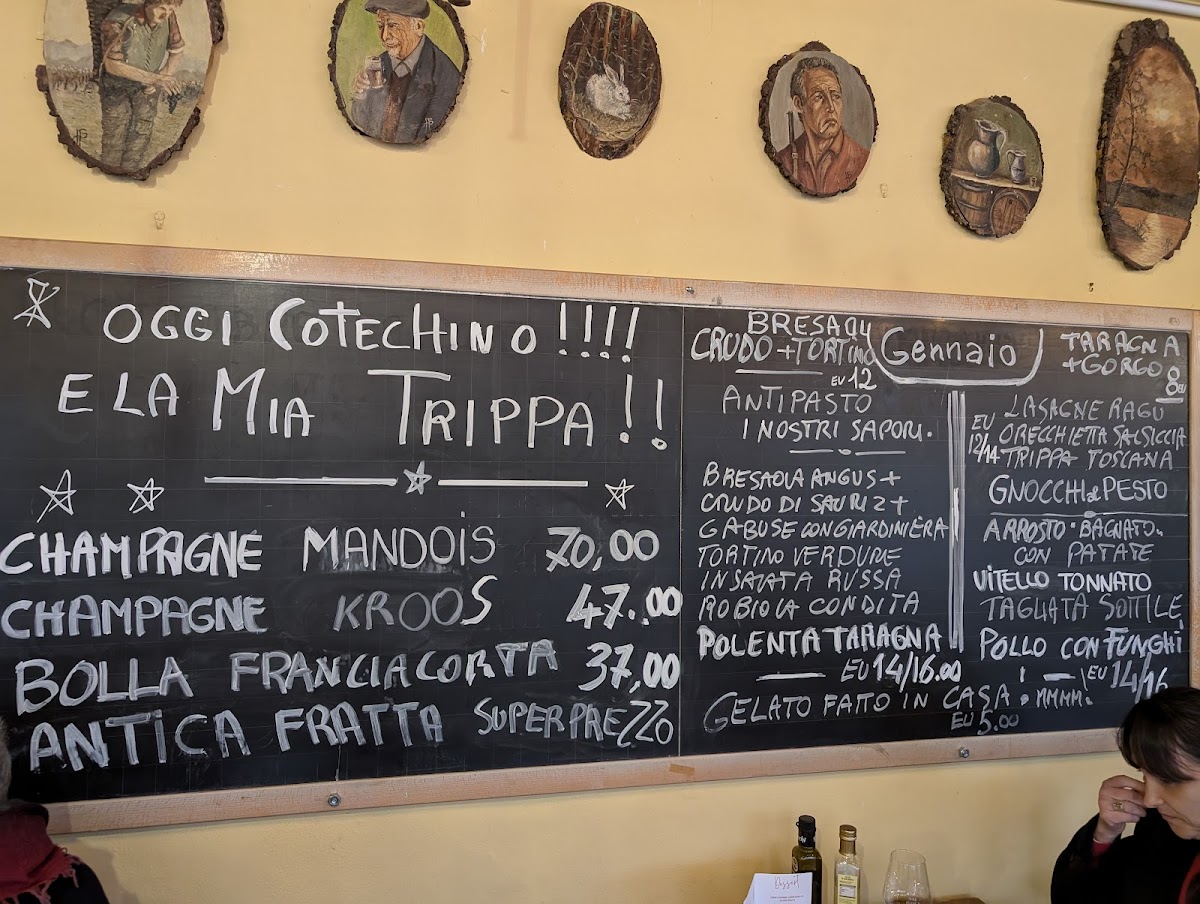 OGGI COTECHINO !!!!
E LA MIA TRIPPA !!
CHAMPAGNE MANDOIS 70,00
CHAMPAGNE KROOS 47.00
BOLLA FRANCIACORTA 37,00
ANTICA FRATTA SUPERPREZZO
Gennaio
BRESAOLA
CRUDO + TORTINO
EU 12
ANTIPASTO
I NOSTRI SAPORI.
BRESAOLA ANGUS +
CRUDO DI SAURIZ +
GABUSE CON GIARDINIERA
TORTINO VERDURE
INSALATA RUSSA
ROBIOLA CONDITA
POLENTA TARAGNA
EU 14/16.00
TARAGNA
+ GORGO 8EU
LASAGNE RAGU
EU 12/14 ORECCHIETTA SALSICCIA
TRIPPA TOSCANA
GNOCCHI al PESTO
ARROSTO BAGNATO
CON PATATE
VITELLO TONNATO
TAGLIATA SOTTILE
POLLO CON FUNGHI
EU 14/16
GELATO FATTO IN CASA MMMM!
EU 5.00
Dessert